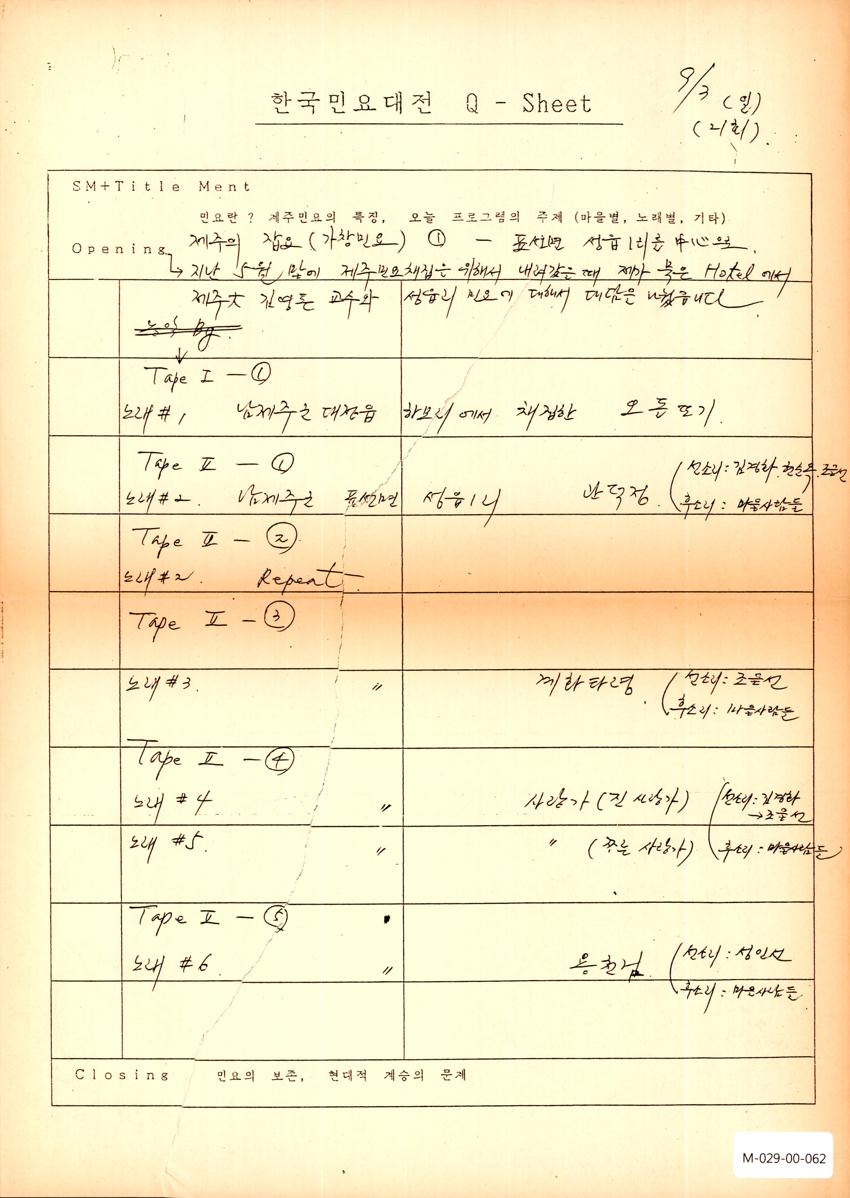 한국민요대전 Q - Sheet
9/3 (일)
(21회)
SM+Title Ment
민요란? 제주민요의 특징, 오늘 프로그램의 주제 (마을별, 노래별, 기타)
Opening 제주의 잡요 (가창민요) ① - 표선면 성읍1리를 中心으로
→ 지난 5월 말에 제주민요채집을 위해서 내려갔을 때 제가 묵은 Hotel에서
제주大 김영돈 교수와 성읍리 민요에 대해서 대담을 나눴습니다
농악 Bg.
Tape I - ①
노래 #1 남제주군 대정읍 하모리에서 채집한 오돌또기
Tape II - ① (선소리: 김경화, 현순욱, 조을선
노래 #2. 남제주군 표선면 성읍1리 관덕정 후소리: 마을사람들
Tape II - ②
노래 #2. Repeat
Tape II - ③
노래 #3. 〃 계화타령 (선소리: 조을선
후소리: 마을사람들
Tape II - ④
노래 #4 〃 사랑가 (진 사랑가) (선소리: 김경화
→ 조을선
노래 #5. 〃 〃 (쪼른 사랑가) 후소리: 마을사람들
Tape II - ⑤
노래 #6 〃 용천검 (선소리: 성인선
후소리: 마을사람들
Closing 민요의 보존, 현대적 계승의 문제
M-029-00-062